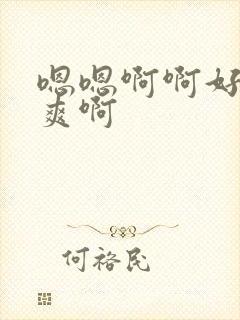 嗯嗯啊啊好
爽啊
何裕民